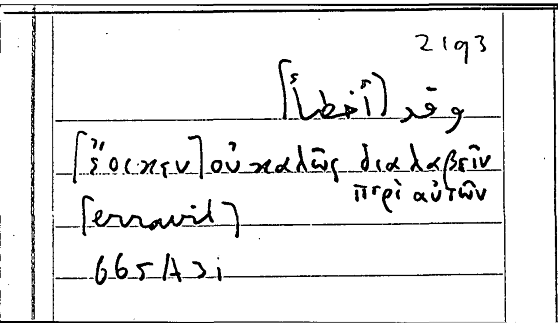 2193
وقد [أخطأ]
[ἔοικεν] οὐ καλῶς διαλαβεῖν
περὶ αὐτῶν
[erravit]
665A3i